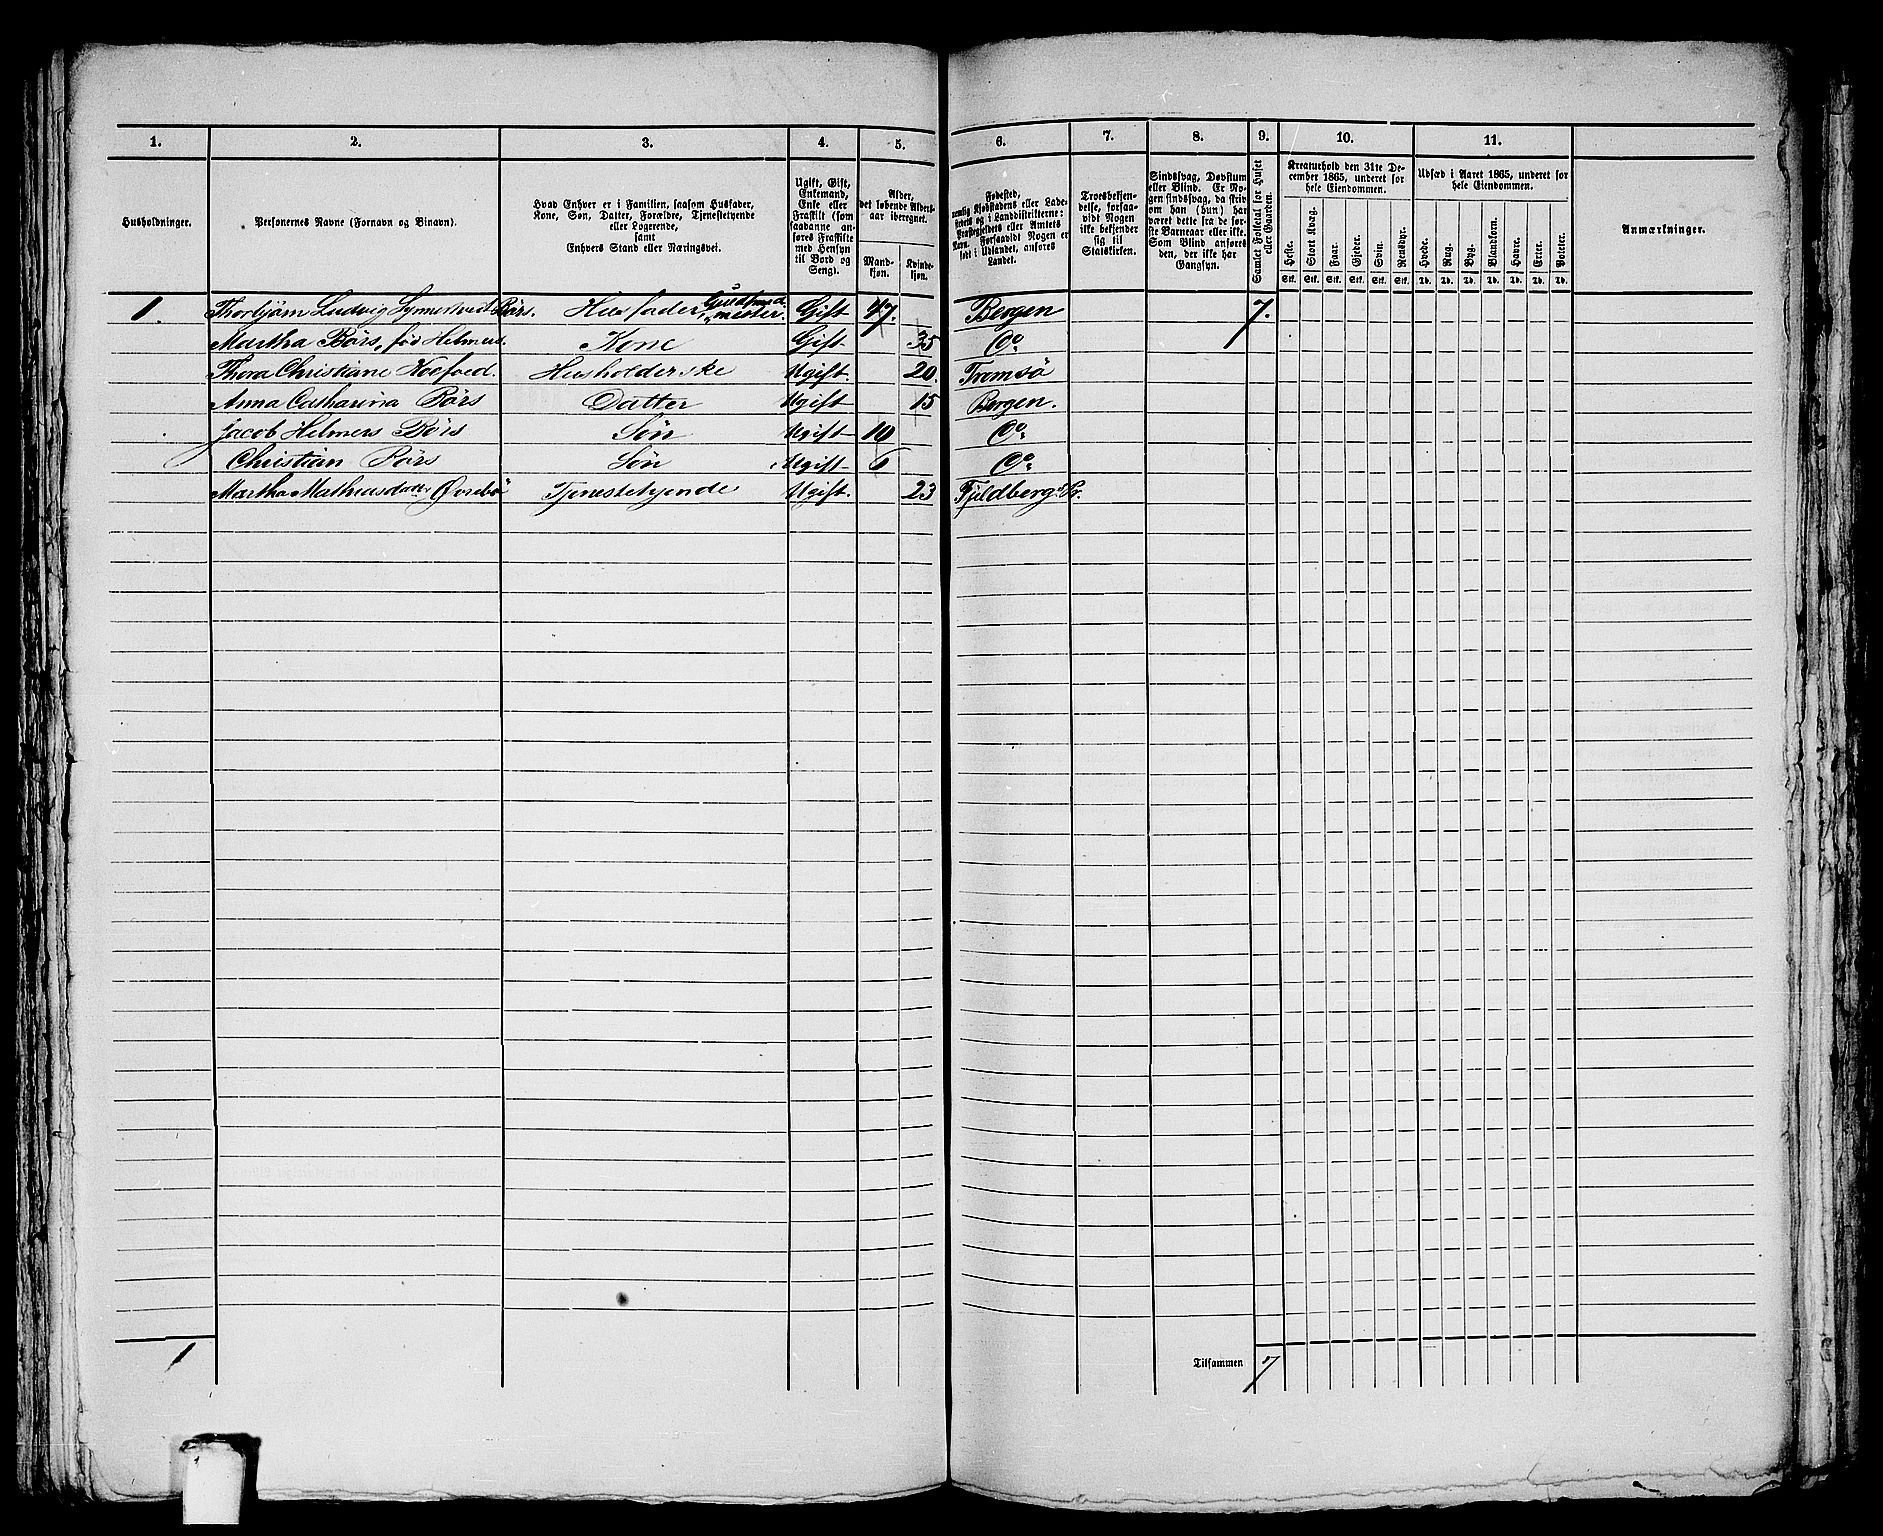 1. 2. 3. 4. 5. 6. 7. 8. 9. 10. 11.
Husholdninger.
Personernes Navne (Fornavn og Binavn).
Hvad Enhver er i Familien, saasom Husfader,
Kone, Søn, Datter, Forældre, Tjenestetyende
eller Logerende,
samt
Enhvers Stand eller Næringsvei.
Ugift, Gift,
Enkemand,
Enke eller
Fraskilt (som
saadanne an-
føres Fraskilte
med Hensyn
til Bord og
Seng).
Alder,
det løbende Alders-
aar iberegnet.
Mand-
kjøn.
Kvinde-
kjøn.
Fødested,
nemlig Kjøbstadens eller Lade-
stedets og i Landdistrikterne:
Præstegjeldets eller Amtets
Navn. Forsaavidt Nogen er
født i Udlandet, anføres
Landet.
Troesbekjen-
delse, forsaa-
vidt Nogen
ikke bekjender
sig til
Statskirken.
Sindssvag, Døvstum
eller Blind. Er No-
gen sindssvag, da skriv
om han (hun) har
været dette fra de før-
ste Barneaar eller ikke.
Som Blind anføres
den, der ikke har
Gangsyn.
Samlet Folketal for Huset
eller Gaarden.
Kreaturhold den 31te De-
cember 1865, underet for
hele Eiendommen.
Heste. Stort Kvæg. Faar. Gjeder. Svin. Rensdyr.
Stk. Stk. Stk. Stk. Stk. Stk.
Udsæd i Aaret 1865, underet for
hele Eiendommen.
Hvede. Rug. Byg. Blandkorn. Havre. Erter. Poteter.
Td. Td. Td. Td. Td. Td. Td.
Anmærkninger.
1. Thorbjørn Ludvig Børs. Husfader, Guldsmed- mester. Gift 47. Bergen 7.
Martha Børs, fød Helmers. Kone Gift 35 Do
Thora Christiane Koefoed. Husholderske Ugift. 20. Tromsö
Anna Catharina Børs Datter Ugift 15 Bergen.
Jacob Helmers Børs Søn Ugift 10 Do
Christian Børs Søn Ugift 6 Do
Martha Mathiasdatter Øvrebö Tjenestetyende Ugift. 23 Fjeldberg Pr.
1
Tilsammen 7